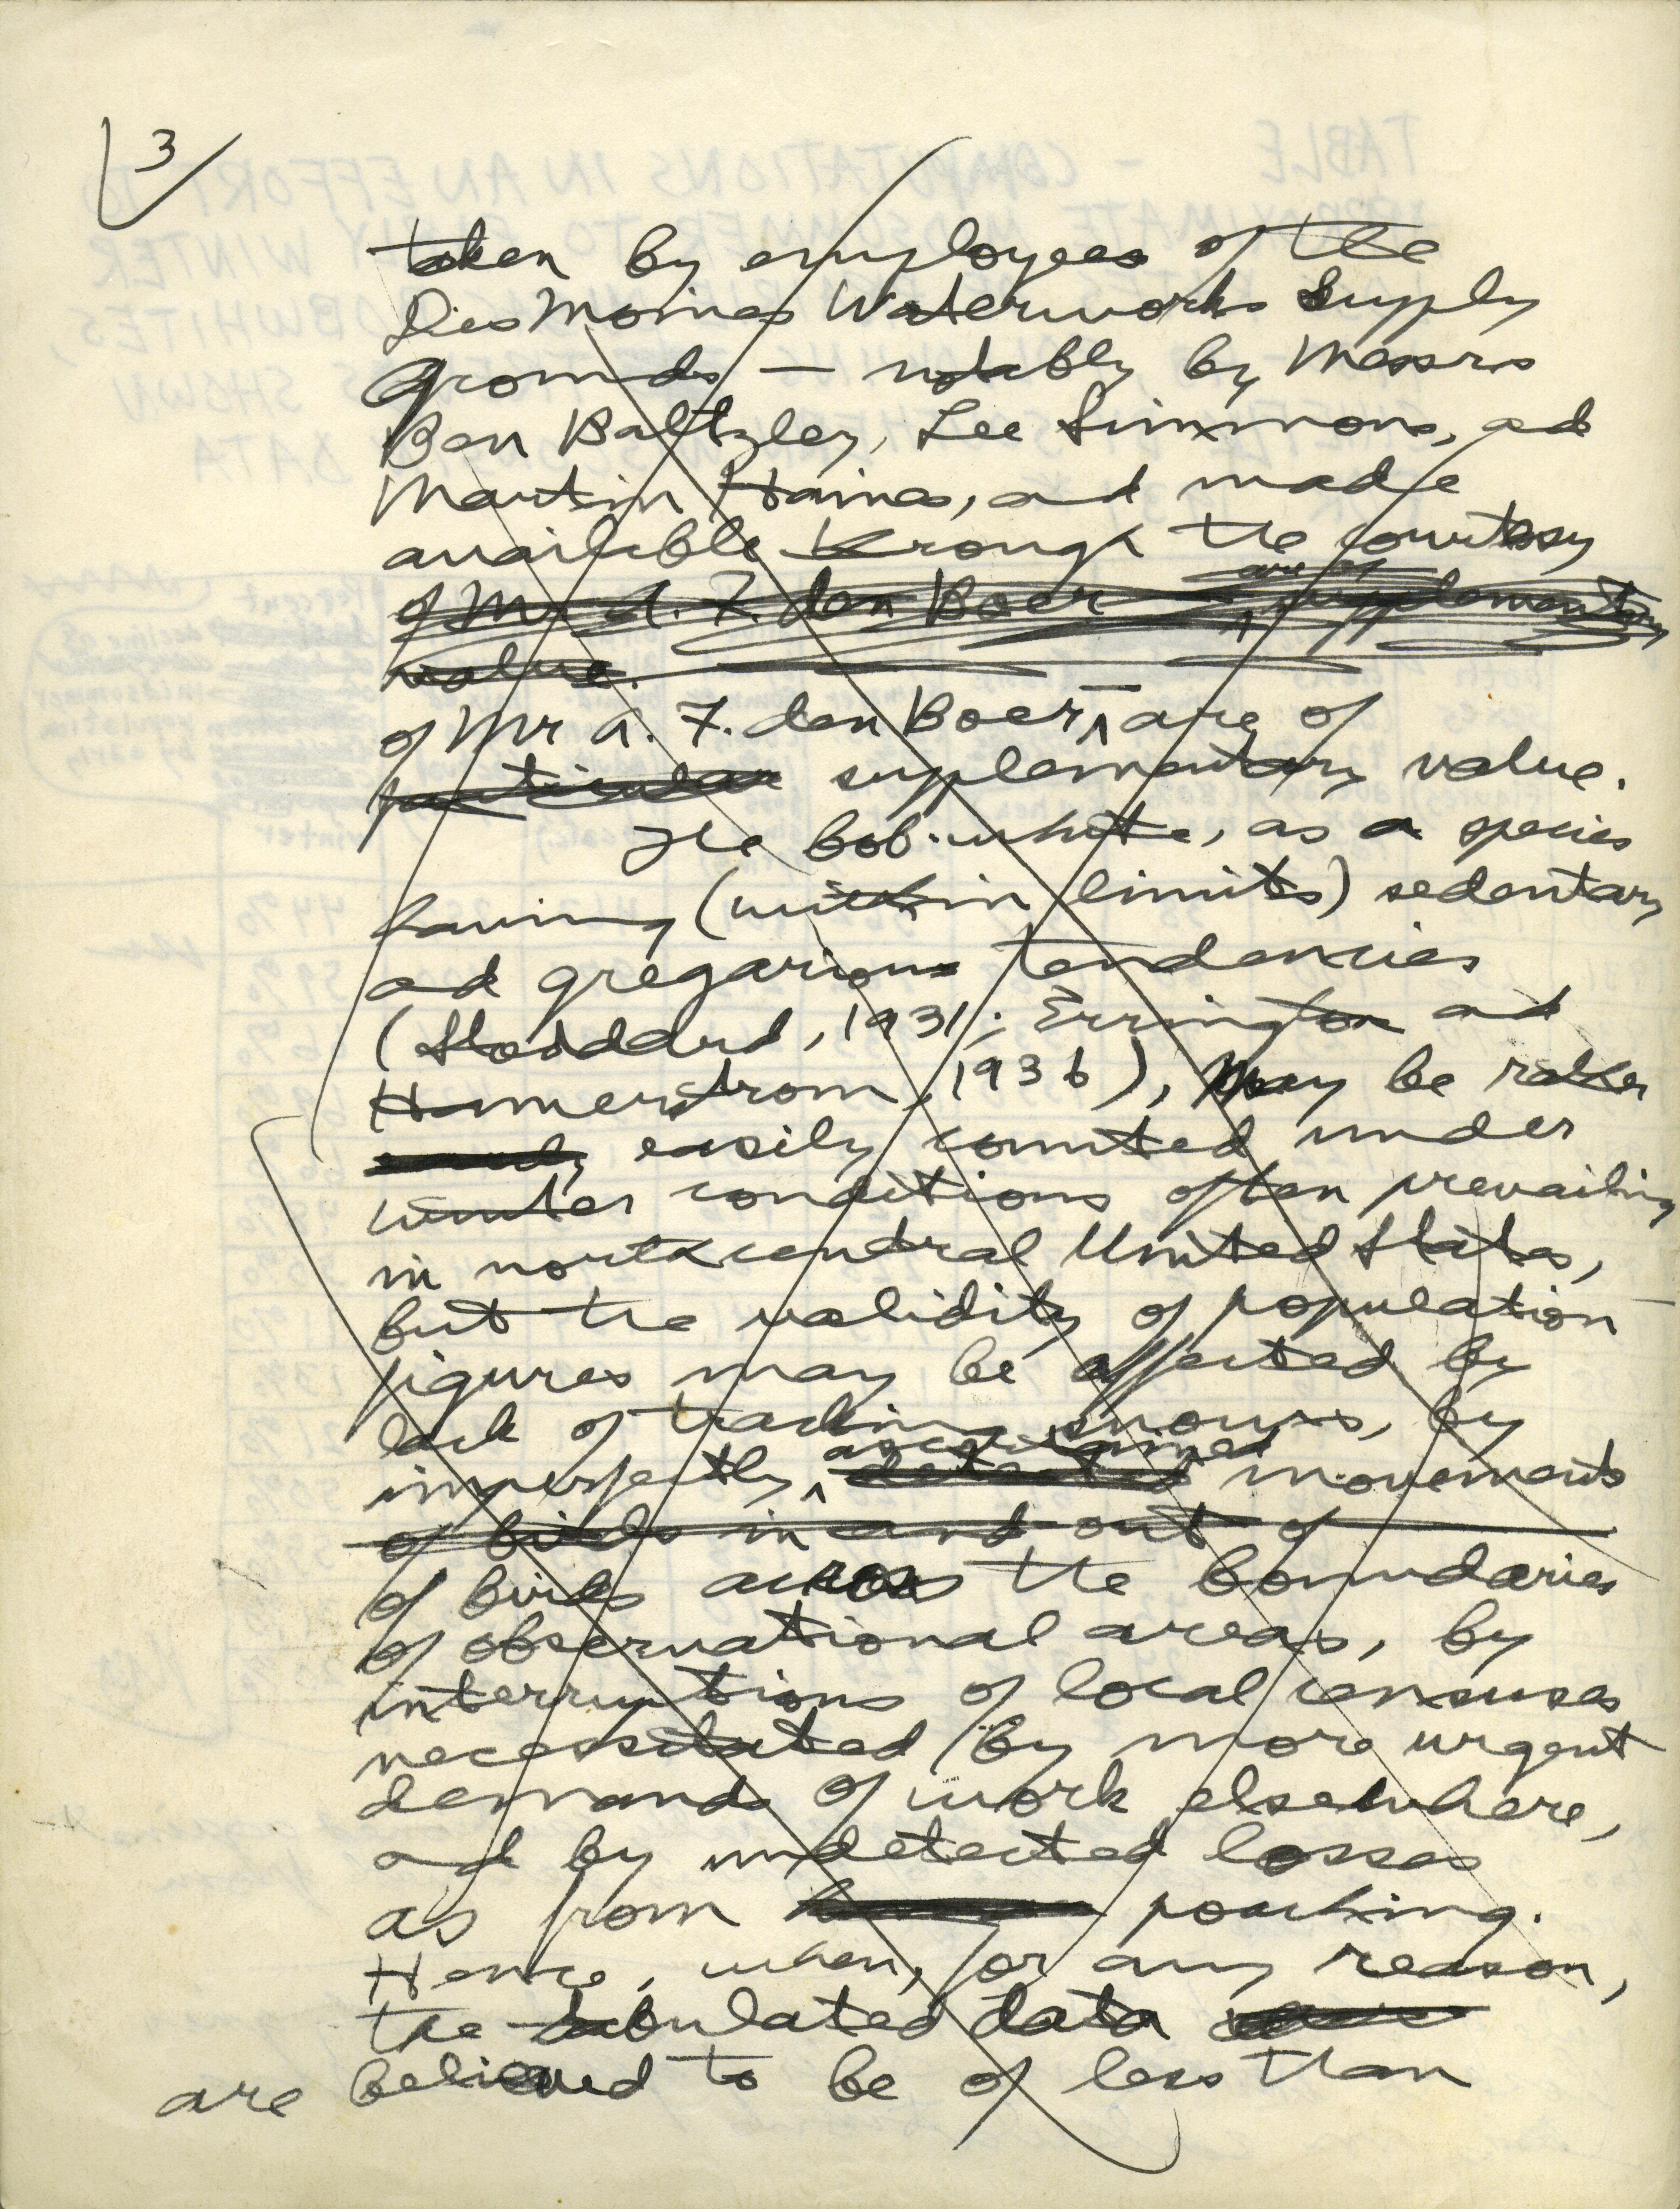 3
taken by employees of the
Des Moines Waterworks Supply
Grounds — notably by Messrs
Ben Baltzley, Lee Simmons, ad
Martin Haines, ad made
available through the courtesy
of Mr. A. F. den Boer are of supplementary
value.
of Mr A. F. den Boer — are of
particular suplementary value.
The bob-white, as a species
having (within limits) sedentary
ad gregarious tendencies
(Stoddard, 1931; Errington ad
Hamerstrom, 1936), may be rather
easily counted under
winter conditions often prevailing
in northcentral United States,
but the validity of population
figures may be affected by
lack of tracking snows, by
ascertained
imperfectly detected movements
of birds in and out of
of birds across the boundaries
of observational areas, by
interruptions of local censuses
necessitated by more urgent
demands of work elsewhere,
ad by undetected losses
as from poaching.
Hence, when, for any reason,
the tabulated data
are believed to be of less than